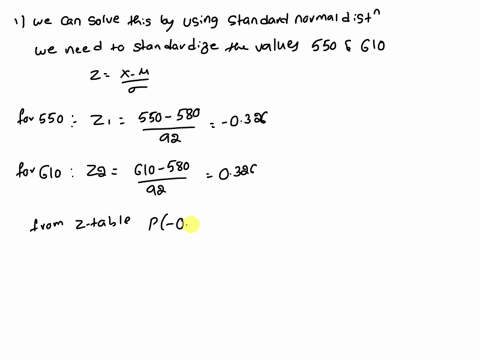 1) we can solve this by using standard normal distⁿ
we need to standardize the values 550 & 610
Z = x-μ/σ
for 550 :- Z1 = 550-580/92 = -0.326
for 610 : Z2 = 610-580/92 = 0.326
from z-table P(-0.